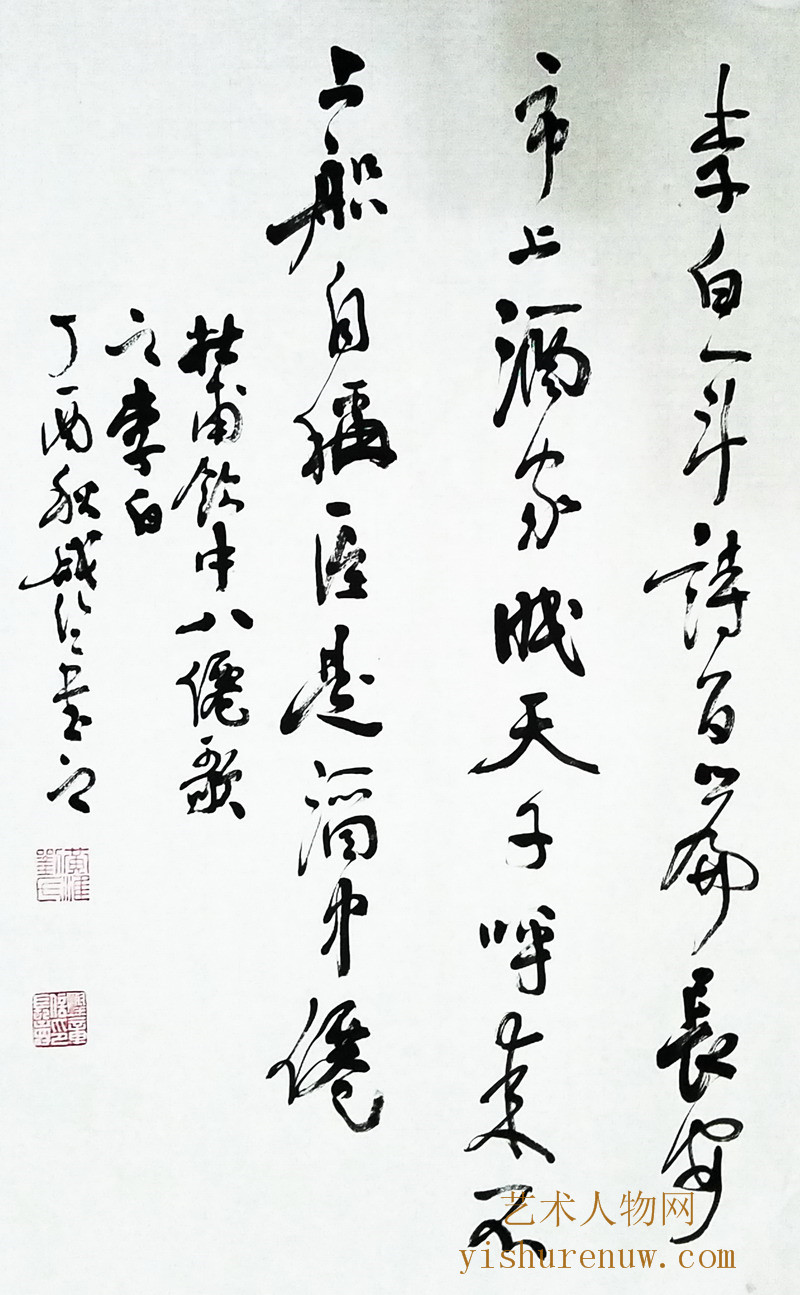 李白一斗詩百篇長安
市上酒家眠天子呼来不
上船自稱臣是酒中僊
杜甫飲中八僊歌
之李白
丁酉秋
艺术人物网
yishurenuw.com